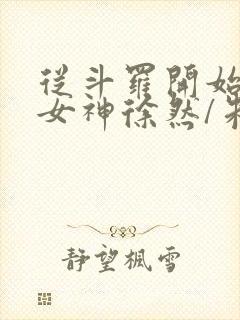 從斗羅開始
女神徐然/朱
靜望楓雪